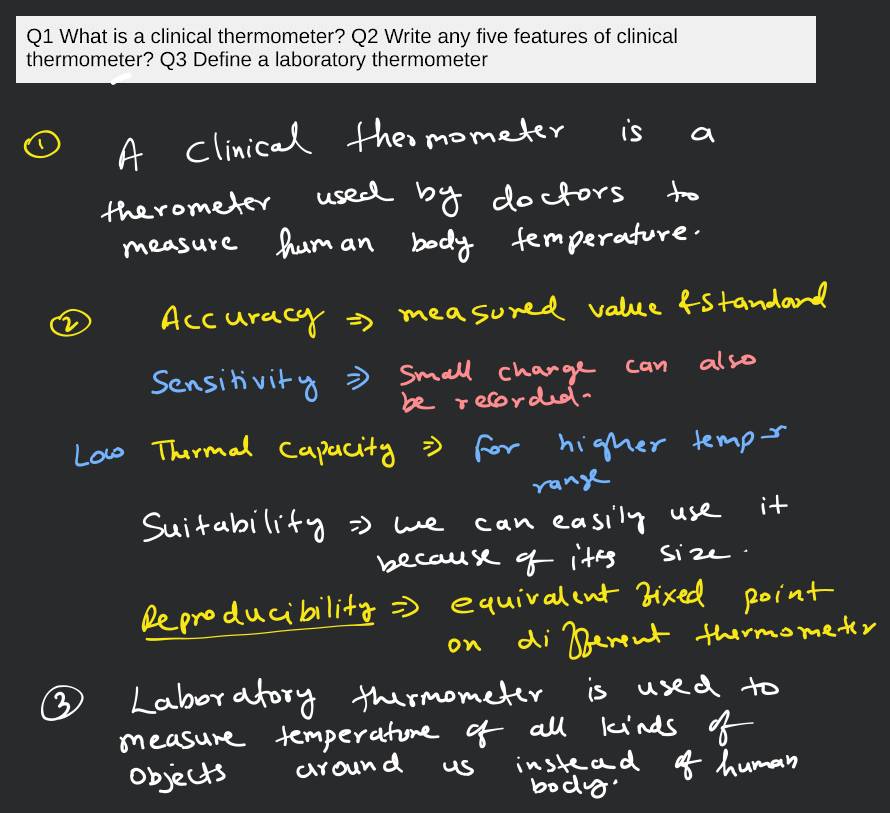 Q1 What is a clinical thermometer? Q2 Write any five features of clinical
thermometer? Q3 Define a laboratory thermometer
① A clinical thermometer is a
therometer used by doctors to
measure human body temperature.
② Accuracy ⇒ measured value & standard
Sensitivity ⇒ Small change can also
be recorded.
Low Thermal Capacity ⇒ for higher temp
range
Suitability ⇒ we can easily use it
because of its size.
Reproducibility ⇒ equivalent fixed point
on different thermometer
③ Laboratory thermometer is used to
measure temperature of all kinds of
objects around us instead of human
body.